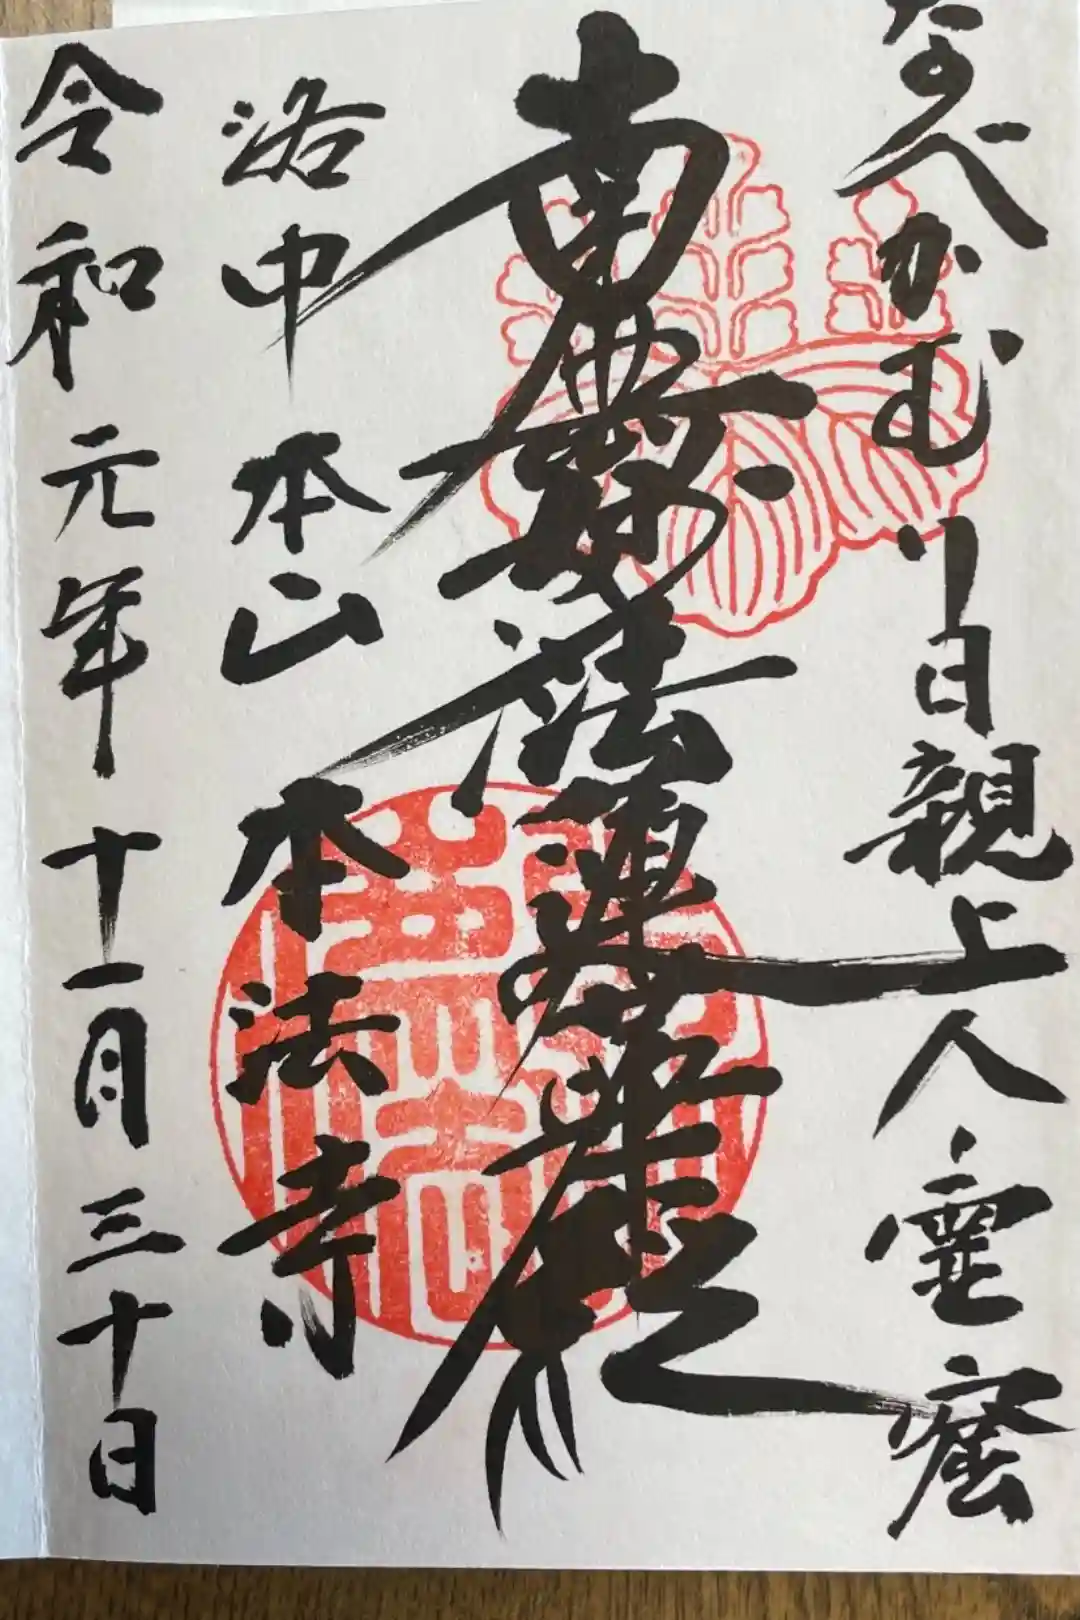 なべかむり日親上人霊窟
南無妙法蓮華経
洛中 本山 本法寺
令和元年十一月三十日